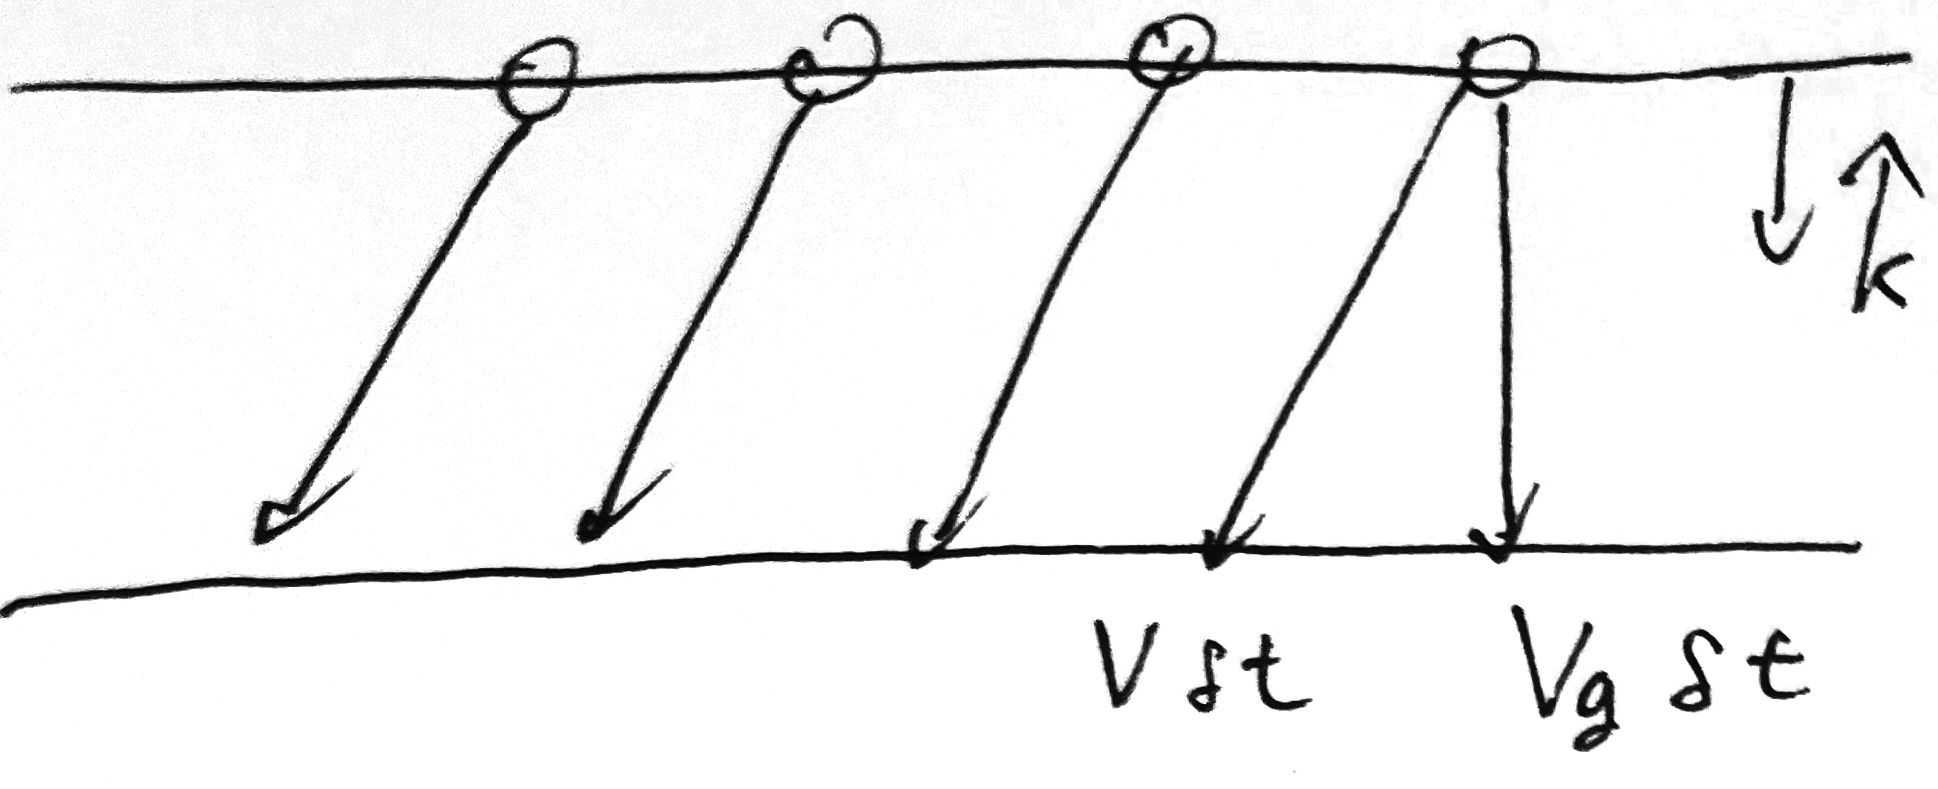 k
V δt
Vg δt